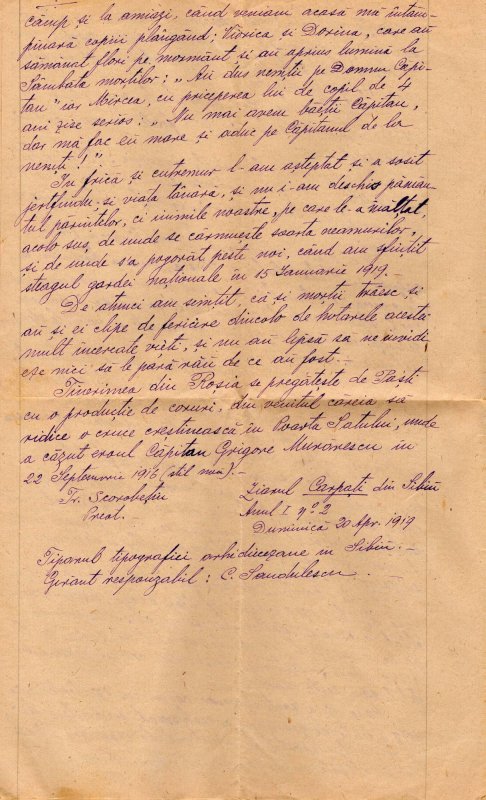 câmp și la amiazi, când veniam acasă mă întâm-
pinară copiii plângând; Viorica și Dorina, care au
sămănat flori pe mormânt și au aprins lumină la
Sâmbăta morților: „Au dus nemții pe Domnu Căpi-
tan" iar Mircea, cu priceperea lui de copil de 4
ani zise serios: „Nu mai avem băeții Căpitan,
dar mă fac eu mare și aduc pe Căpitanul de la
nemți!"
În frică și cutremur l-am așteptat și a sosit
jerfindu-și viața tânără, și nu i-am deschis pămân-
tul părinților, ci inimile noastre, pe care le-a înălțat,
acolo sus, de unde se cârmuește soarta neamurilor,
și de unde s'a pogorât peste noi, când am sfințit
steagul gardei naționale în 15 Ianuarie 1919.-
De atunci am simțit, că și morții trăesc și
au și ei clipe de fericire dincolo de hotarele acestei
mult încercate vieți, și nu au lipsă să ne invidi-
eze nici să le pară rău de ce au fost.-
Tinerimea din Roșia se pregătește de Paști
cu o producție de coruri, din venitul căreia să
ridice o cruce creștinească în Poarta Satului, unde
a căzut eroul Căpitan Grigore Murărescu în
22 Septembrie 1916 (stil nou).-
Tr. Scorobețiu
Preot.
Ziarul Carpați din Sibiu
Anul I nº 2
Duminică 20 Apr. 1919
Tiparul tipografiei arhidiecezane în Sibiu.-
Girant responzabil: C. Sandulescu.-